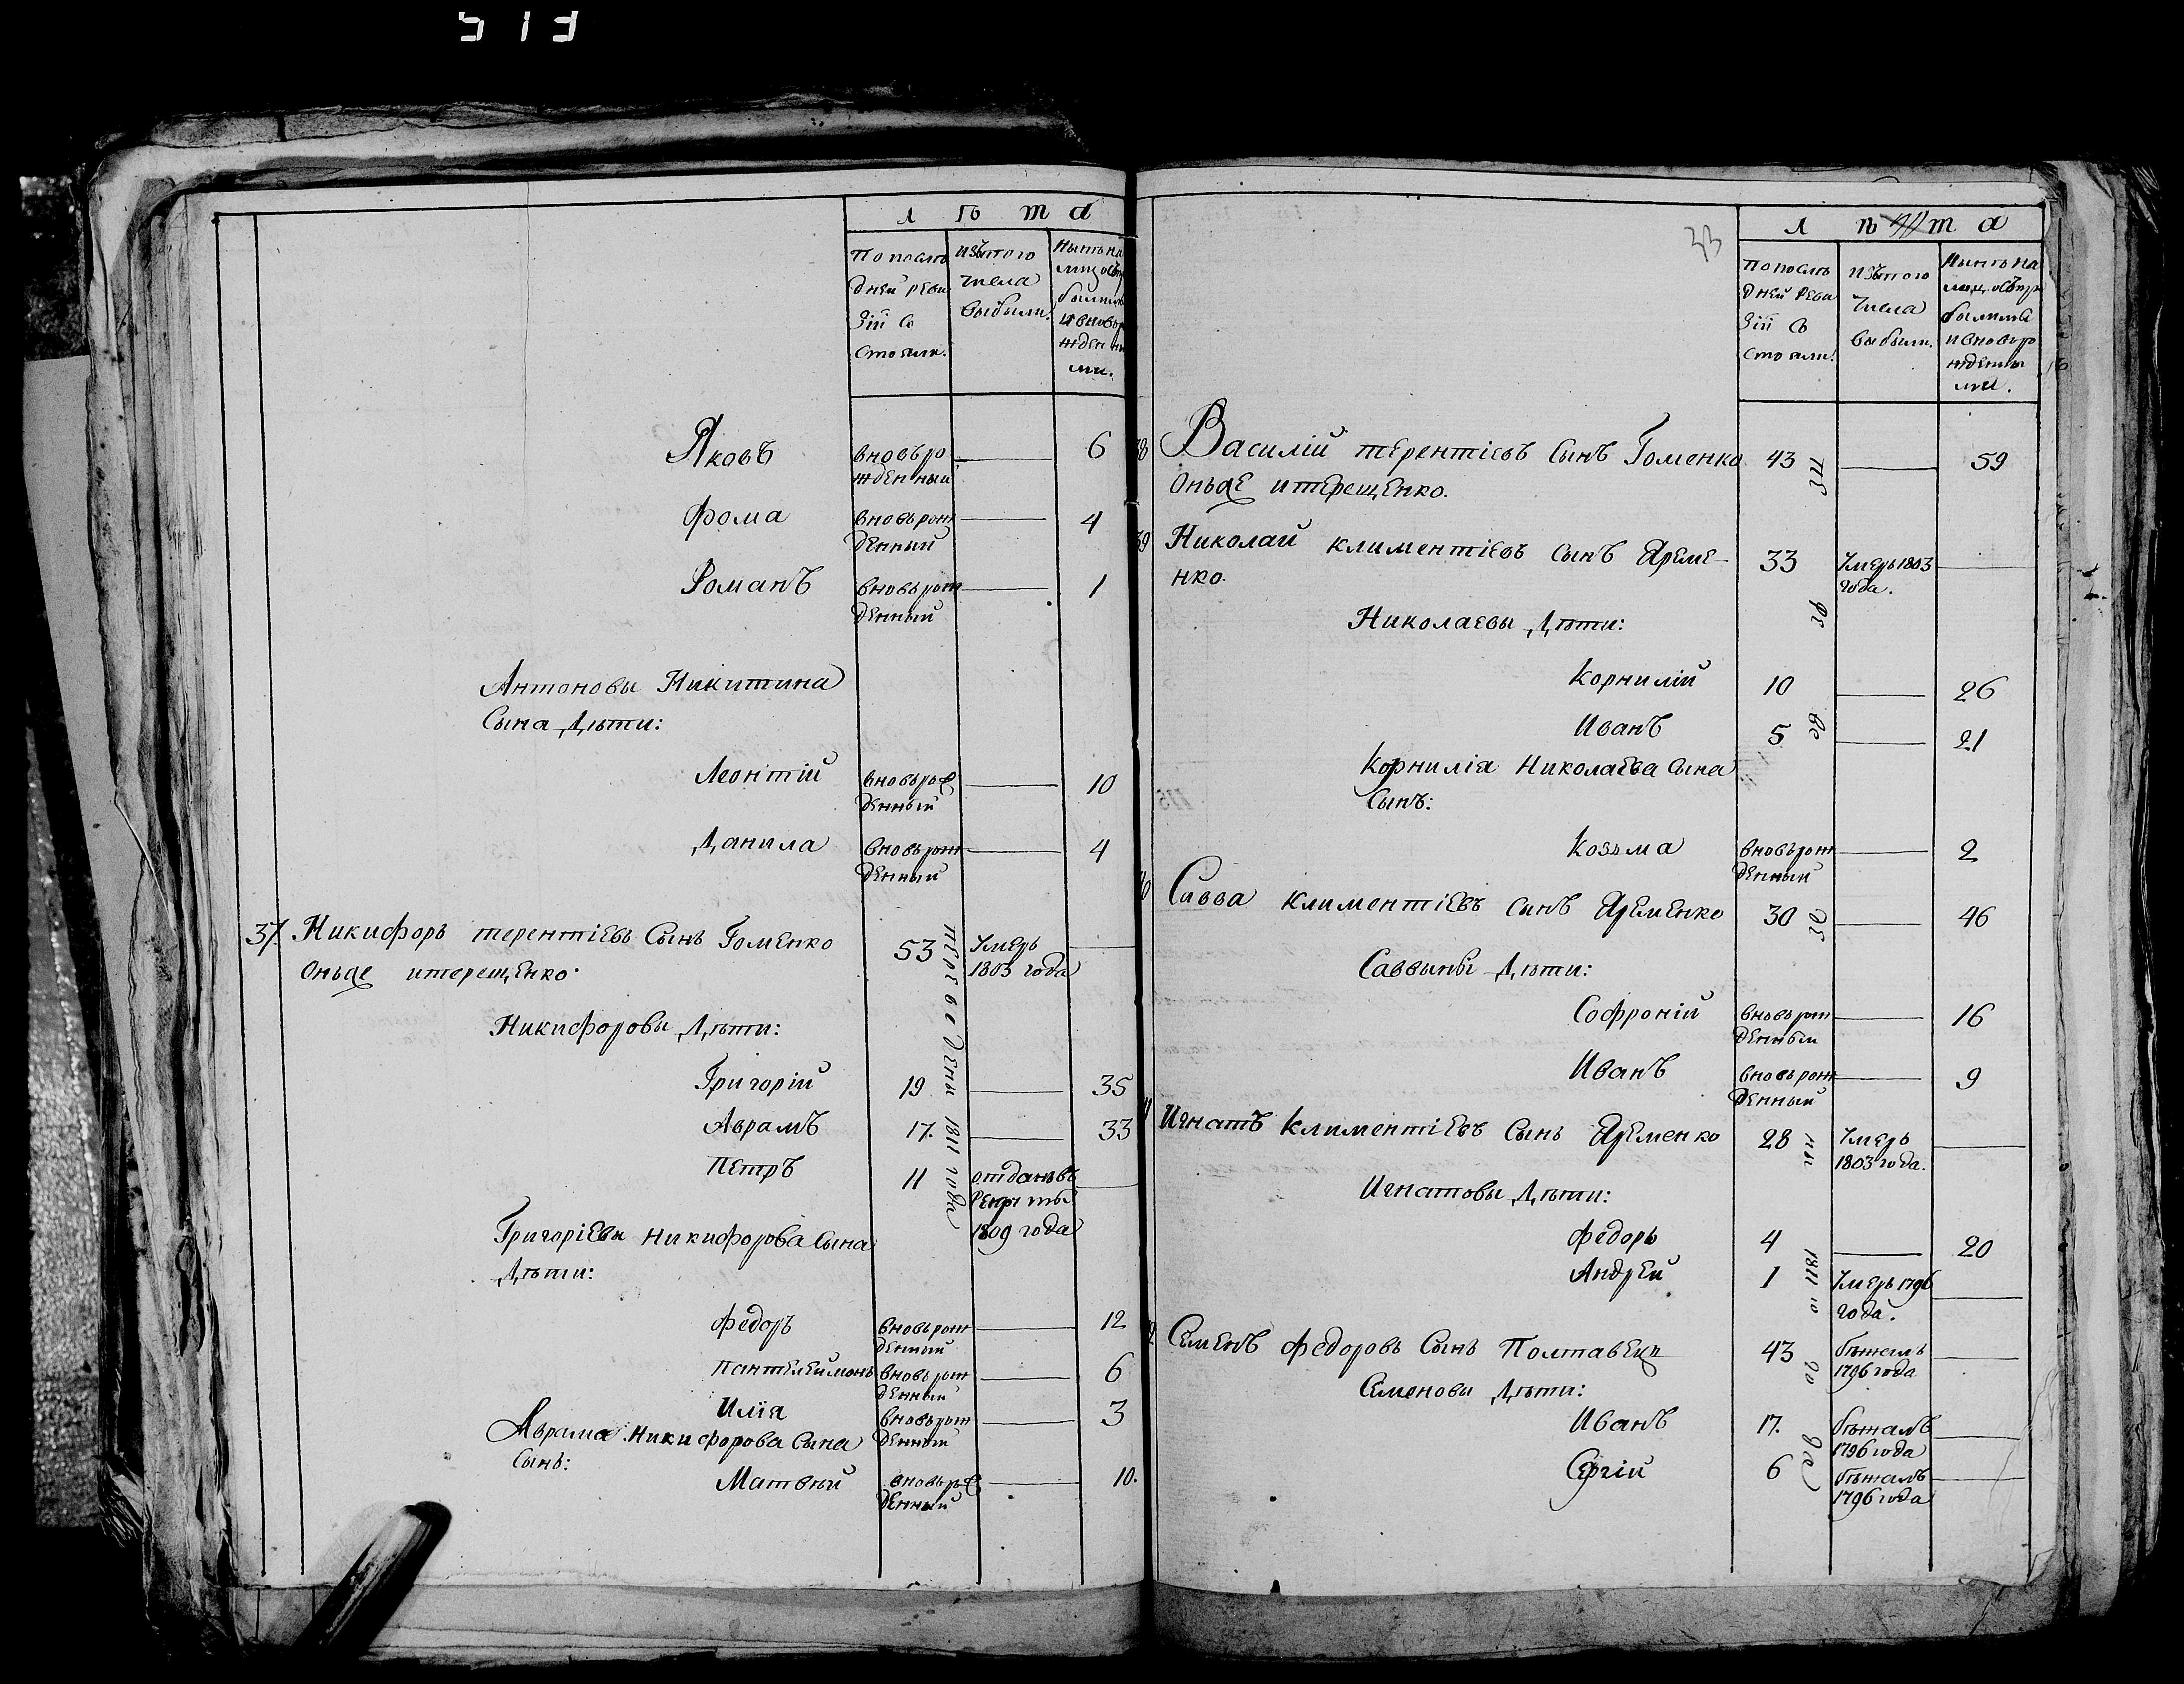 513
лѣта
По послѣ
дней реви
зiи со
стояли.
изътого
числа
выбыли.
Яковъ вновьро 6
жденный
Фома вновьрож 4
денный
Романъ вновьрож 1
денный
Антоновы Никитина
Сына Дѣти:
Леонтiй вновьрож 10
денный
Данила вновьрож 4
денный
37. Никифоръ терентiевъ Сынъ Гоменко 53 Умеръ
Оньже итерещенко. 1803 года
переведены 1811 года
Никифоровы Дѣти:
Григорiй 19 35
Аврамъ 17. 33
Петръ 11 отданъвъ
рекруты
1809 года
Григорiевы Никифорова Сына
Дѣти:
Федоръ вновьрож 12
денный
Пантелеймонъ вновьрож 6
денный
Илiя вновьрож 3
денный
Аврама Никифорова Сына
Сынъ:
Матвѣй вновьрож 10.
денный
33
лѣта
По послѣ
дней реви
зiи со
стояли.
изътого
числа
выбыли.
Нынѣ на
лицо съпри
былыми
ивновьро
жденны
ми.
38 Василiй терентiевъ Сынъ Гоменко 43 59
Оньже итерещенко.
39 Николай климентiевъ Сынъ Яреме- 33 Умеръ1803
нко. года.
Николаевы Дѣти:
Корнилiй 10 26
Иванъ 5 21
Корнилiя Николаева Сына
Сынъ:
Козьма вновьрож 2
денный
40 Савва климентiевъ Сынъ Яременко 30 46
Саввины Дѣти:
Софронiй вновьрож 16
денный
Иванъ вновьрож 9
денный
41 Игнатъ климентiевъ Сынъ Яременко 28 Умеръ
1803 года.
Игнатовы Дѣти:
Федоръ 4 20
Андрей 1 Умеръ 1796
года.
42 Семенъ Федоровъ Сынъ Полтавецъ 43 бѣжалъ
1796 года
Семеновы Дѣти:
Иванъ 17. бѣжалъ
1796 года
Сергiй 6 бѣжалъ
1796 года
пе ре ве де ны 1811 го да